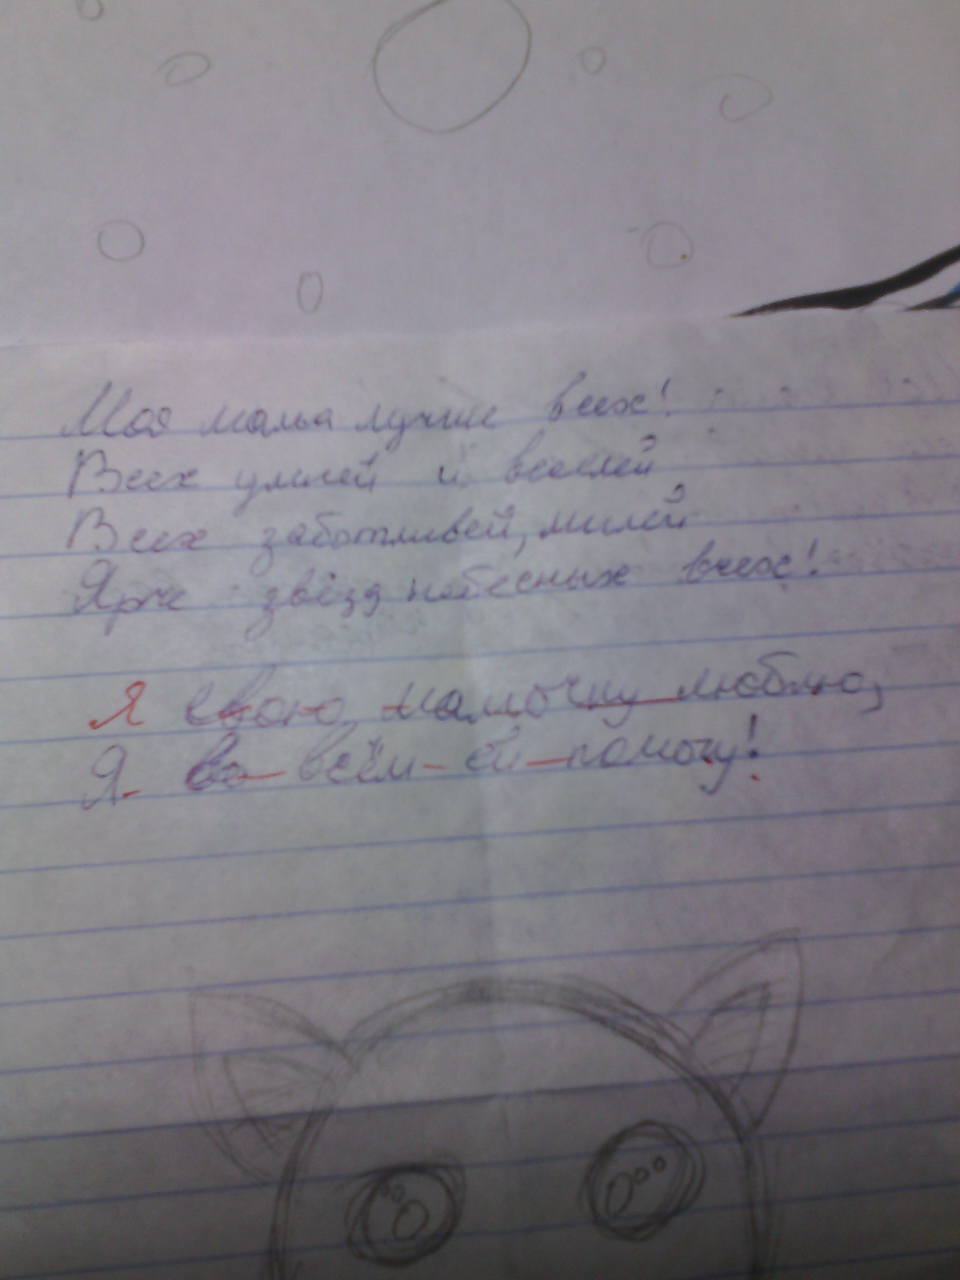 Моя мама лучше всех!
Всех умней и веселей
Всех заботливей, милей
Ярче звёзд небесных всех!
Я свою мамочку люблю,
Я во всём ей помогу!